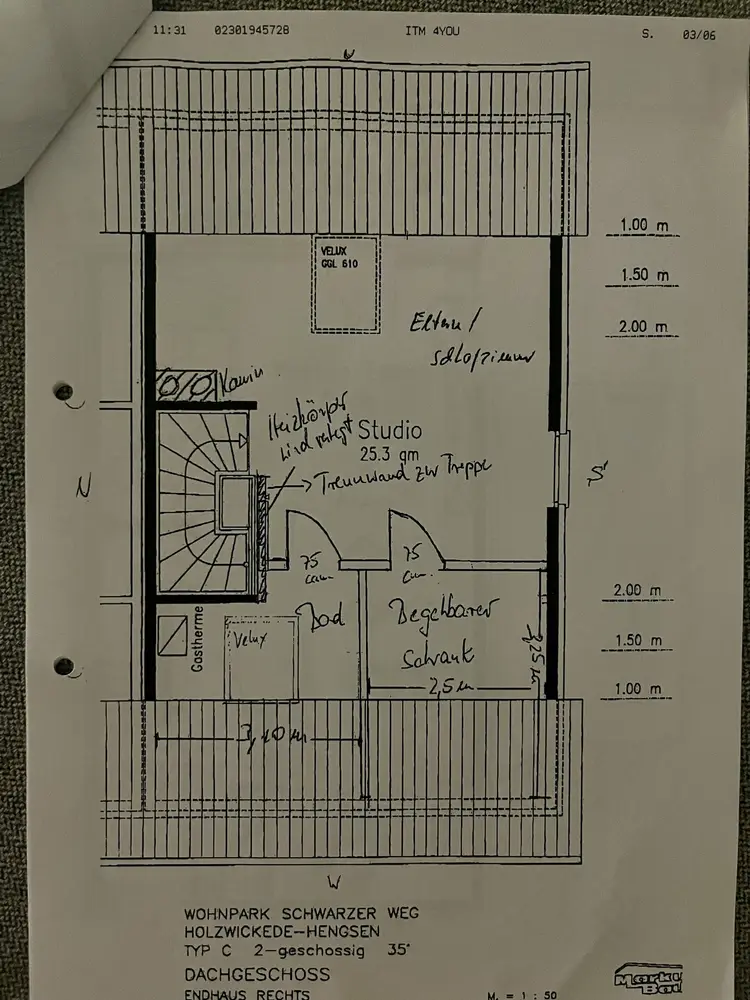 11:31 02301945728 ITM 4YOU S. 03/06
W
1.00 m
VELUX
GGL 610
1.50 m
Eltern/
2.00 m
schlafzimmer
Kamin
Heizkörper
wird verlegt
Studio
25.3 qm
Trennwand zur Treppe
N
S
75
cm
75
cm.
2.00 m
Gastherme
Velux
Bad
Begehbarer
Schrank
3,25 m
1.50 m
2,5 m
1.00 m
3,10 m
W
WOHNPARK SCHWARZER WEG
HOLZWICKEDE-HENGSEN
TYP C 2-geschossig 35°
DACHGESCHOSS
ENDHAUS RECHTS
M. = 1 : 50